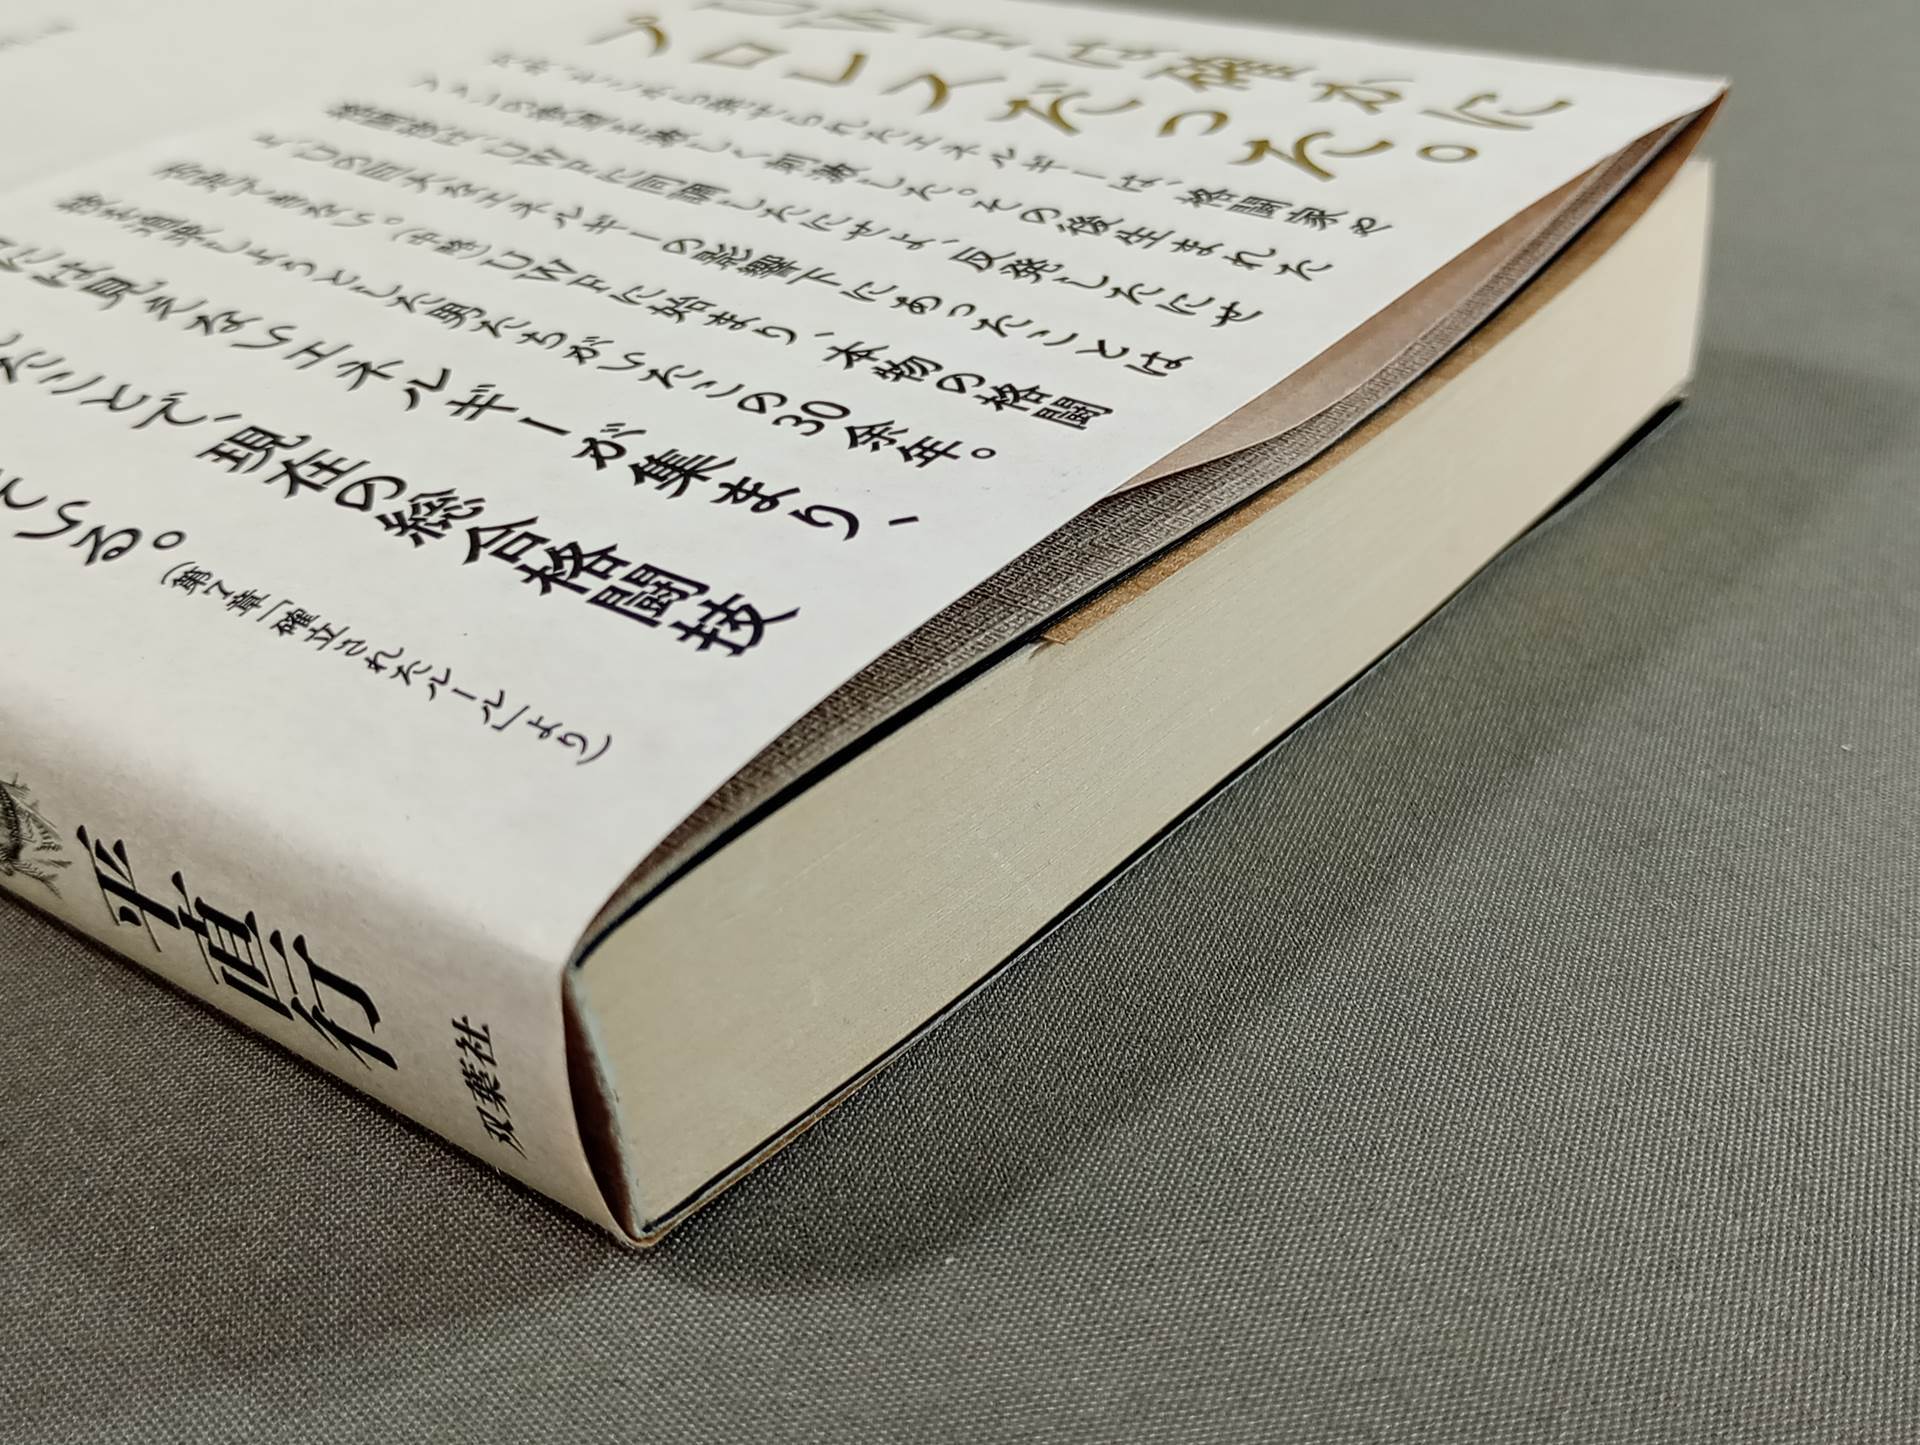 UWFは確かに
プロレスだった。
だが、そこから発せられたエネルギーは、格闘家や
ファンの夢想を激しく刺激した。その後生まれた
格闘技は、UWFに同調したにせよ、反発したにせ
よ、UWFの巨大なエネルギーの影響下にあったことは
否定できない。(中略)UWFに始まり、本物の格闘
技を追求しようとした男たちがいたこの30余年。
には見えないエネルギーが集まり、
たことで、現在の総合格闘技
ている。
(第7章「確立されたルール」より)
平直行
双葉社